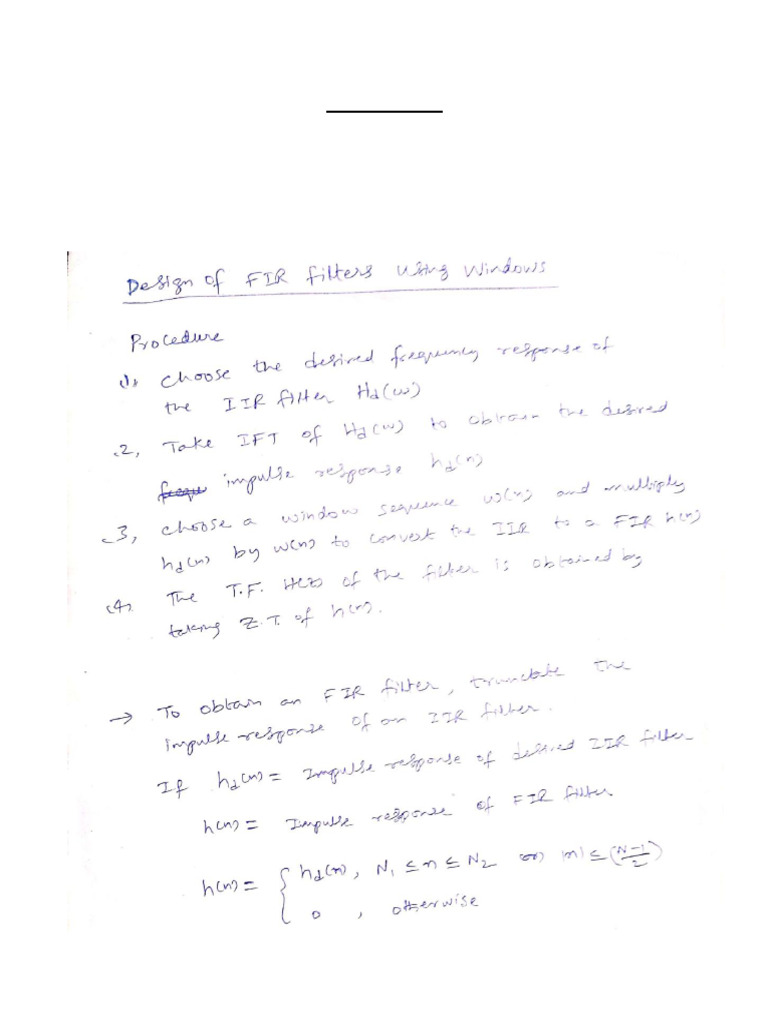 Design of FIR filters using Windows
Procedure
(1), choose the desired frequency response of
the IIR filter Hd(ω)
(2), Take IFT of Hd(ω) to obtain the desired
frequ impulse response hd(n)
(3), choose a window sequence w(n) and multiply
hd(n) by w(n) to convert the IIR to a FIR h(n)
(4), The T.F. H(z) of the filter is obtained by
taking Z.T. of h(n).
→ To obtain an FIR filter, truncate the
impulse response of an IIR filter.
If hd(n) = Impulse response of desired IIR filter
h(n) = Impulse response of FIR filter
h(n) = { hd(n), N1 ≤ n ≤ N2 or |n| ≤ (N-1/2)
0 , otherwise